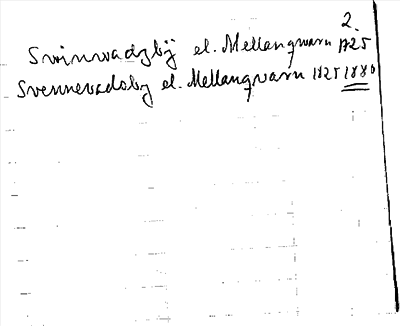 2.
Svinvadzbÿ el. Mellanqvarn 1725
Svennevadsby el. Mellanqvarn 1825 1880